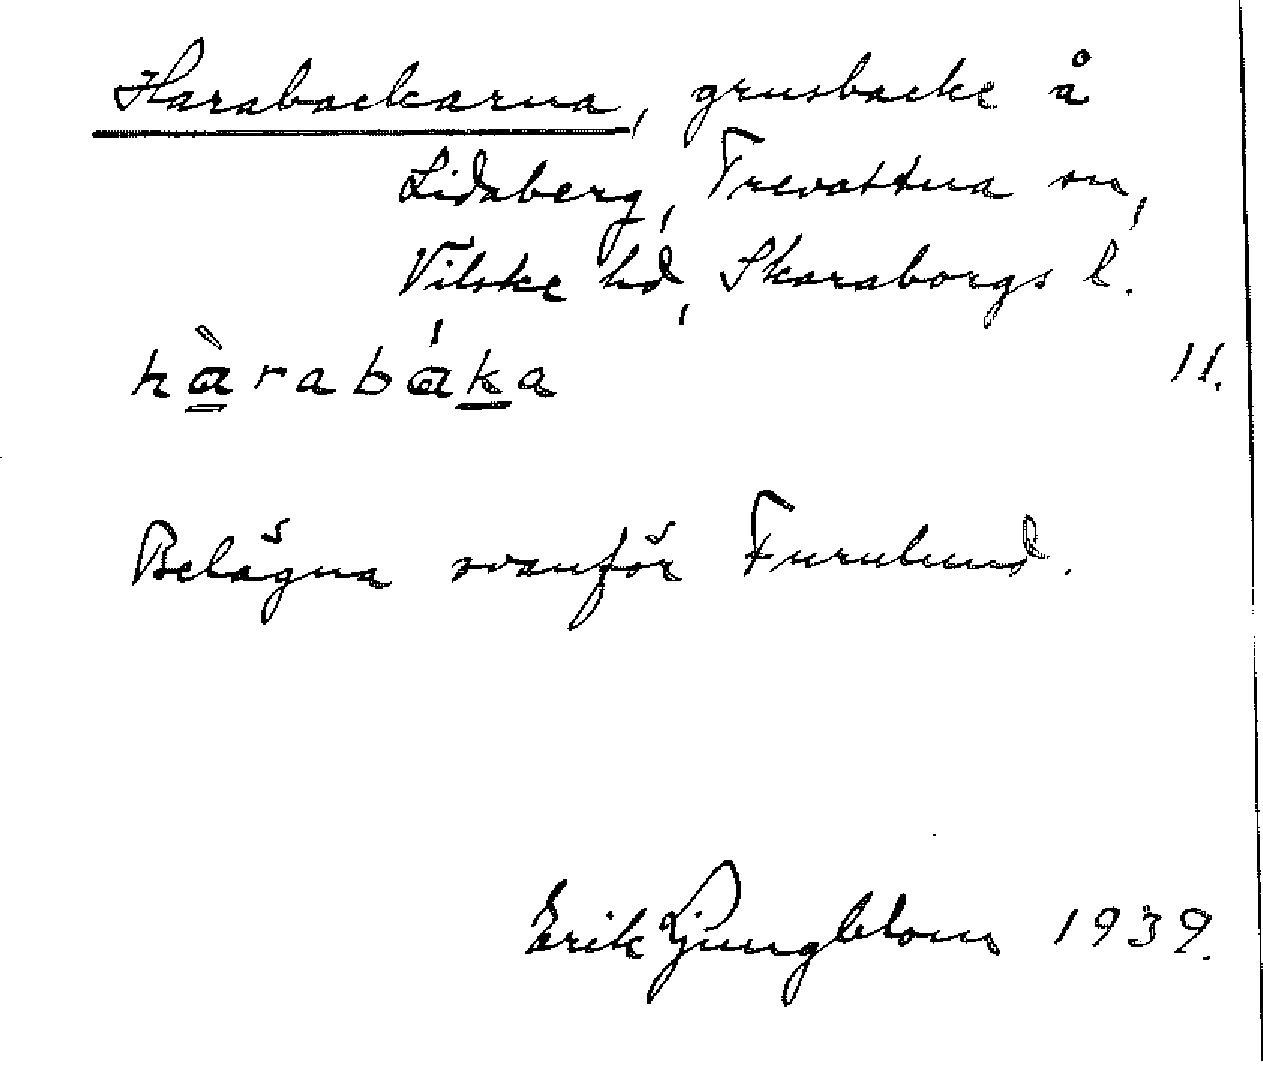 Harabackarna, grusbacke å
Lidsberg, Trevattna sn,
Vilske hd, Skaraborgs l.
hàrabáka 11.
Belägna ovanför Furulund.
Erik Ljungblom 1939.